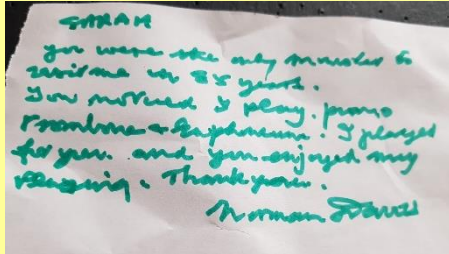 SARAH
you were the only minister to
visit me in 85 years.
You noticed I play. piano
trombone + Euphonium. I played
for you. and you enjoyed my
playing. Thank you.
Norman